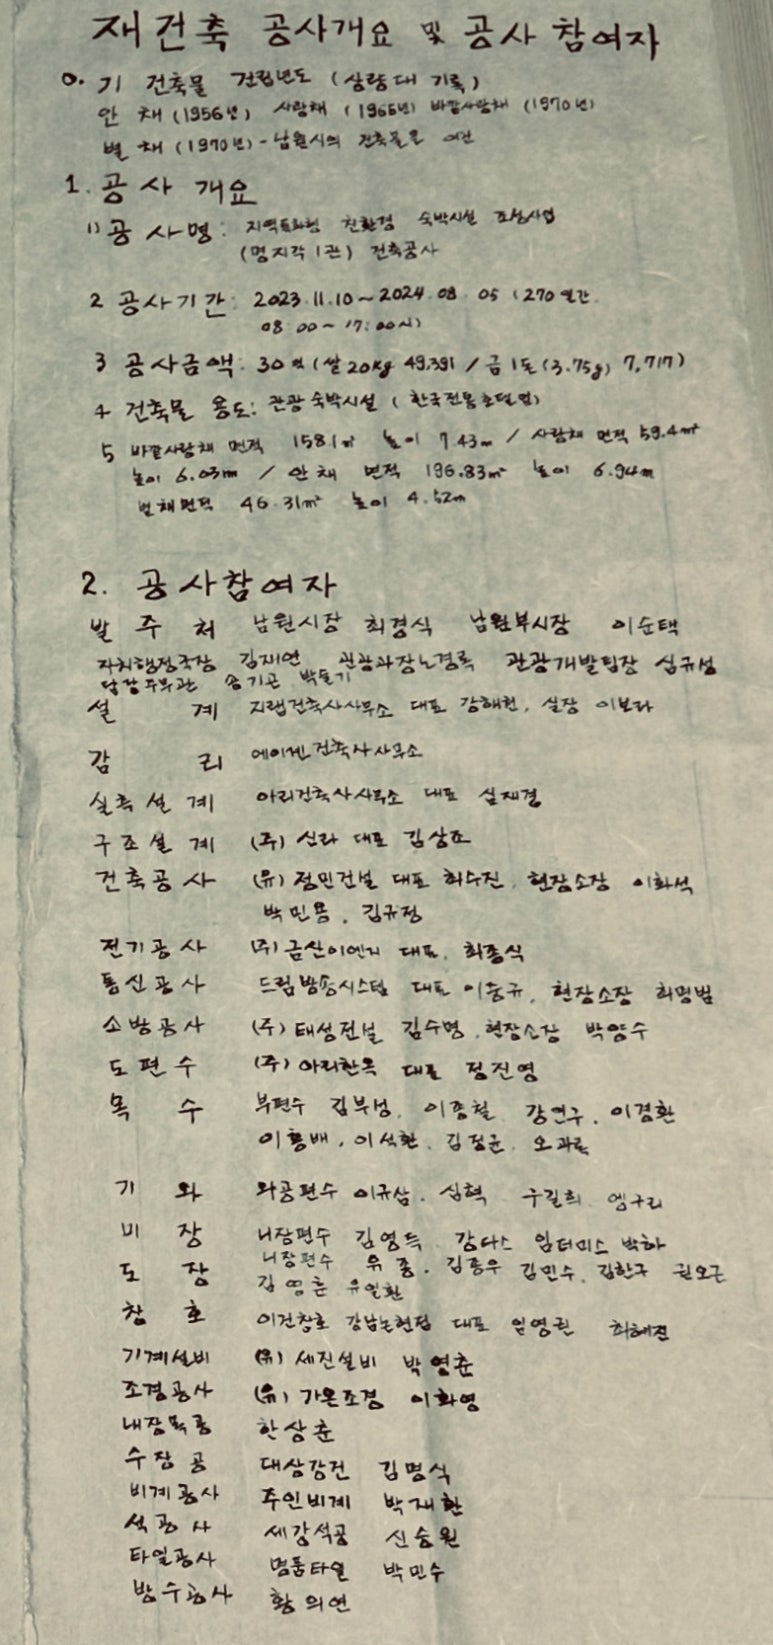 재건축 공사개요 및 공사 참여자
0. 기 건축물 건립년도 (상량대 기록)
안 채 (1956년) 사랑채 (1966년) 바깥사랑채 (1970년)
별 채 (1970년) - 남원시의 건축물로
1. 공사 개요
1) 공 사 명 : 지역특화형 친환경 숙박시설 조성사업
(명지각 1관) 건축공사
2 공사기간 : 2023. 11. 10 ~ 2024. 08. 05 (270일간
08:00 ~ 17:00시)
3 공사금액 : 30억 (쌀 20kg 49,391 / 금 1돈 (3.75g) 7,717)
4 건축물 용도 : 관광숙박시설 ( 한국전통호텔업)
5 바깥사랑채 면적 158.1㎡ 높이 7.43m / 사랑채 면적 59.4㎡
높이 6.03m / 안채 면적 196.83㎡ 높이 6.94m
별채면적 46.31㎡ 높이 4.52m
2. 공사참여자
발 주 처 남원시장 최경식 남원부시장 이순택
자치행정국장 김재연 관광과장 노경록 관광개발팀장 심규성
담당주무관 송기곤 박슬기
설 계 지랩건축사사무소 대표 강해천, 실장 이보라
감 리 에이젠건축사사무소
실측설계 아리건축사사무소 대표 심재경
구조설계 (주) 신라 대표 김상조
건축공사 (유) 정민건설 대표 최수진, 현장소장 이화석
박민용, 김규정
전기공사 (주) 금산이엔지 대표, 최종식
통신공사 드림방송시스템 대표 이용규, 현장소장 최명범
소방공사 (주) 태성전설 김수명, 현장소장 박양수
도편수 (주) 아리한옥 대표 정진영
목 수 부편수 김부성, 이종철, 강연구, 이경환
이홍배, 이석환, 김정균, 오
기 와 와공편수 이규삼, 심혁 구길회
미 장 니장편수 김영득 강다스 임더미스 박하
도 장 니장편수 유종, 김종우 김민수, 김한구 권오근
김영훈 유일환
창 호 이건창호 강남논현점 대표 임영관 최혜진
기계설비 (유) 세진설비 박영춘
조경공사 (유) 가온조경 이화영
내장목공 한상훈
수장공 대상강건 김명식
비계공사 주인비계 박재환
석공사 세강석공 신승원
타일공사 명품타일 박민수
방수공사 황의연